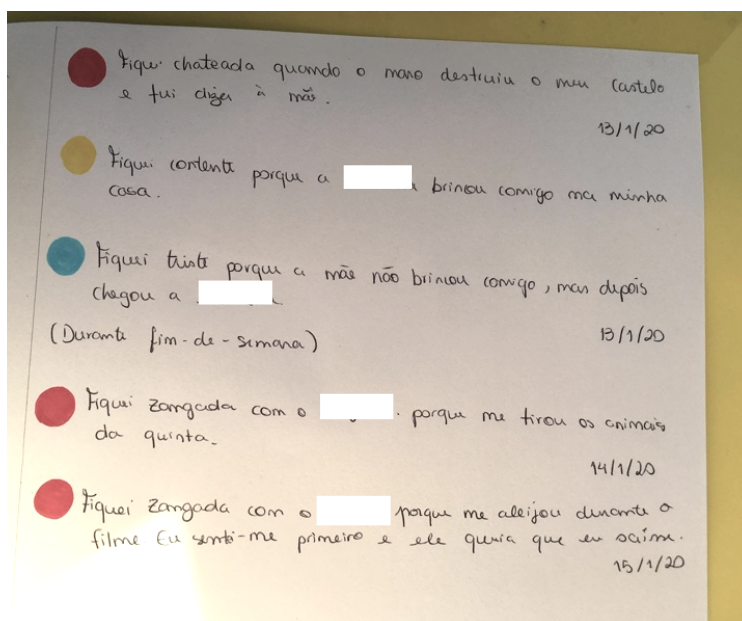 Fiquei chateada quando o mano destruiu o meu castelo
e fui dizer à mãe.
13/1/20
Fiquei contente porque a brincou comigo na minha
casa.
Fiquei triste porque a mãe não brincou comigo, mas depois
chegou a
(Durante fim-de-semana)
13/1/20
Fiquei zangada com o porque me tirou os animais
da quinta.
14/1/20
Fiquei zangada com o porque me aleijou durante o
filme Eu sentei-me primeiro e ele queria que eu saísse.
15/1/20